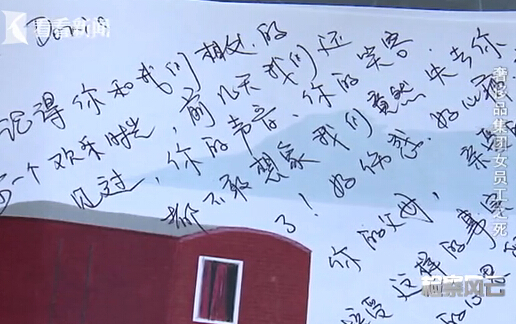 看看新闻
记得你和我们相处的
一个欢乐时光，前几天我们还
见过，你的声音，你的笑容，
都不敢想象我们竟然失去你
了！好伤感，好心
你的父母，亲
受这样的事实
的
奢侈品集团女员工之死
检察风云